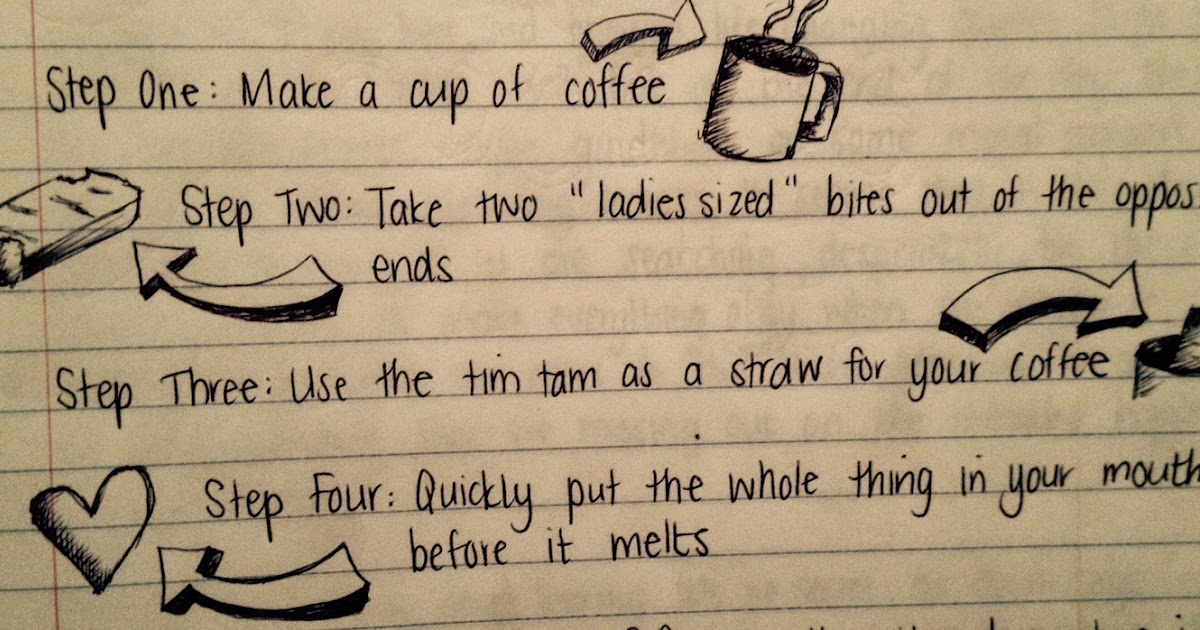 Step One: Make a cup of coffee
Step Two: Take two "ladies sized" bites out of the oppos
ends
Step Three: Use the tim tam as a straw for your coffee
Step Four: Quickly put the whole thing in your mouth
before it melts